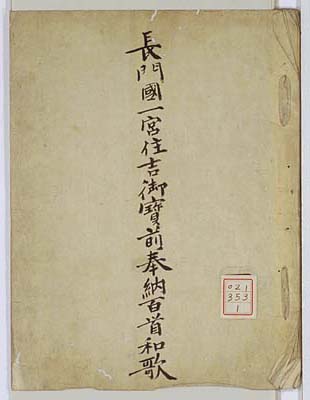 長門國一宮住吉御寶前奉納百首和歌
021
353
1